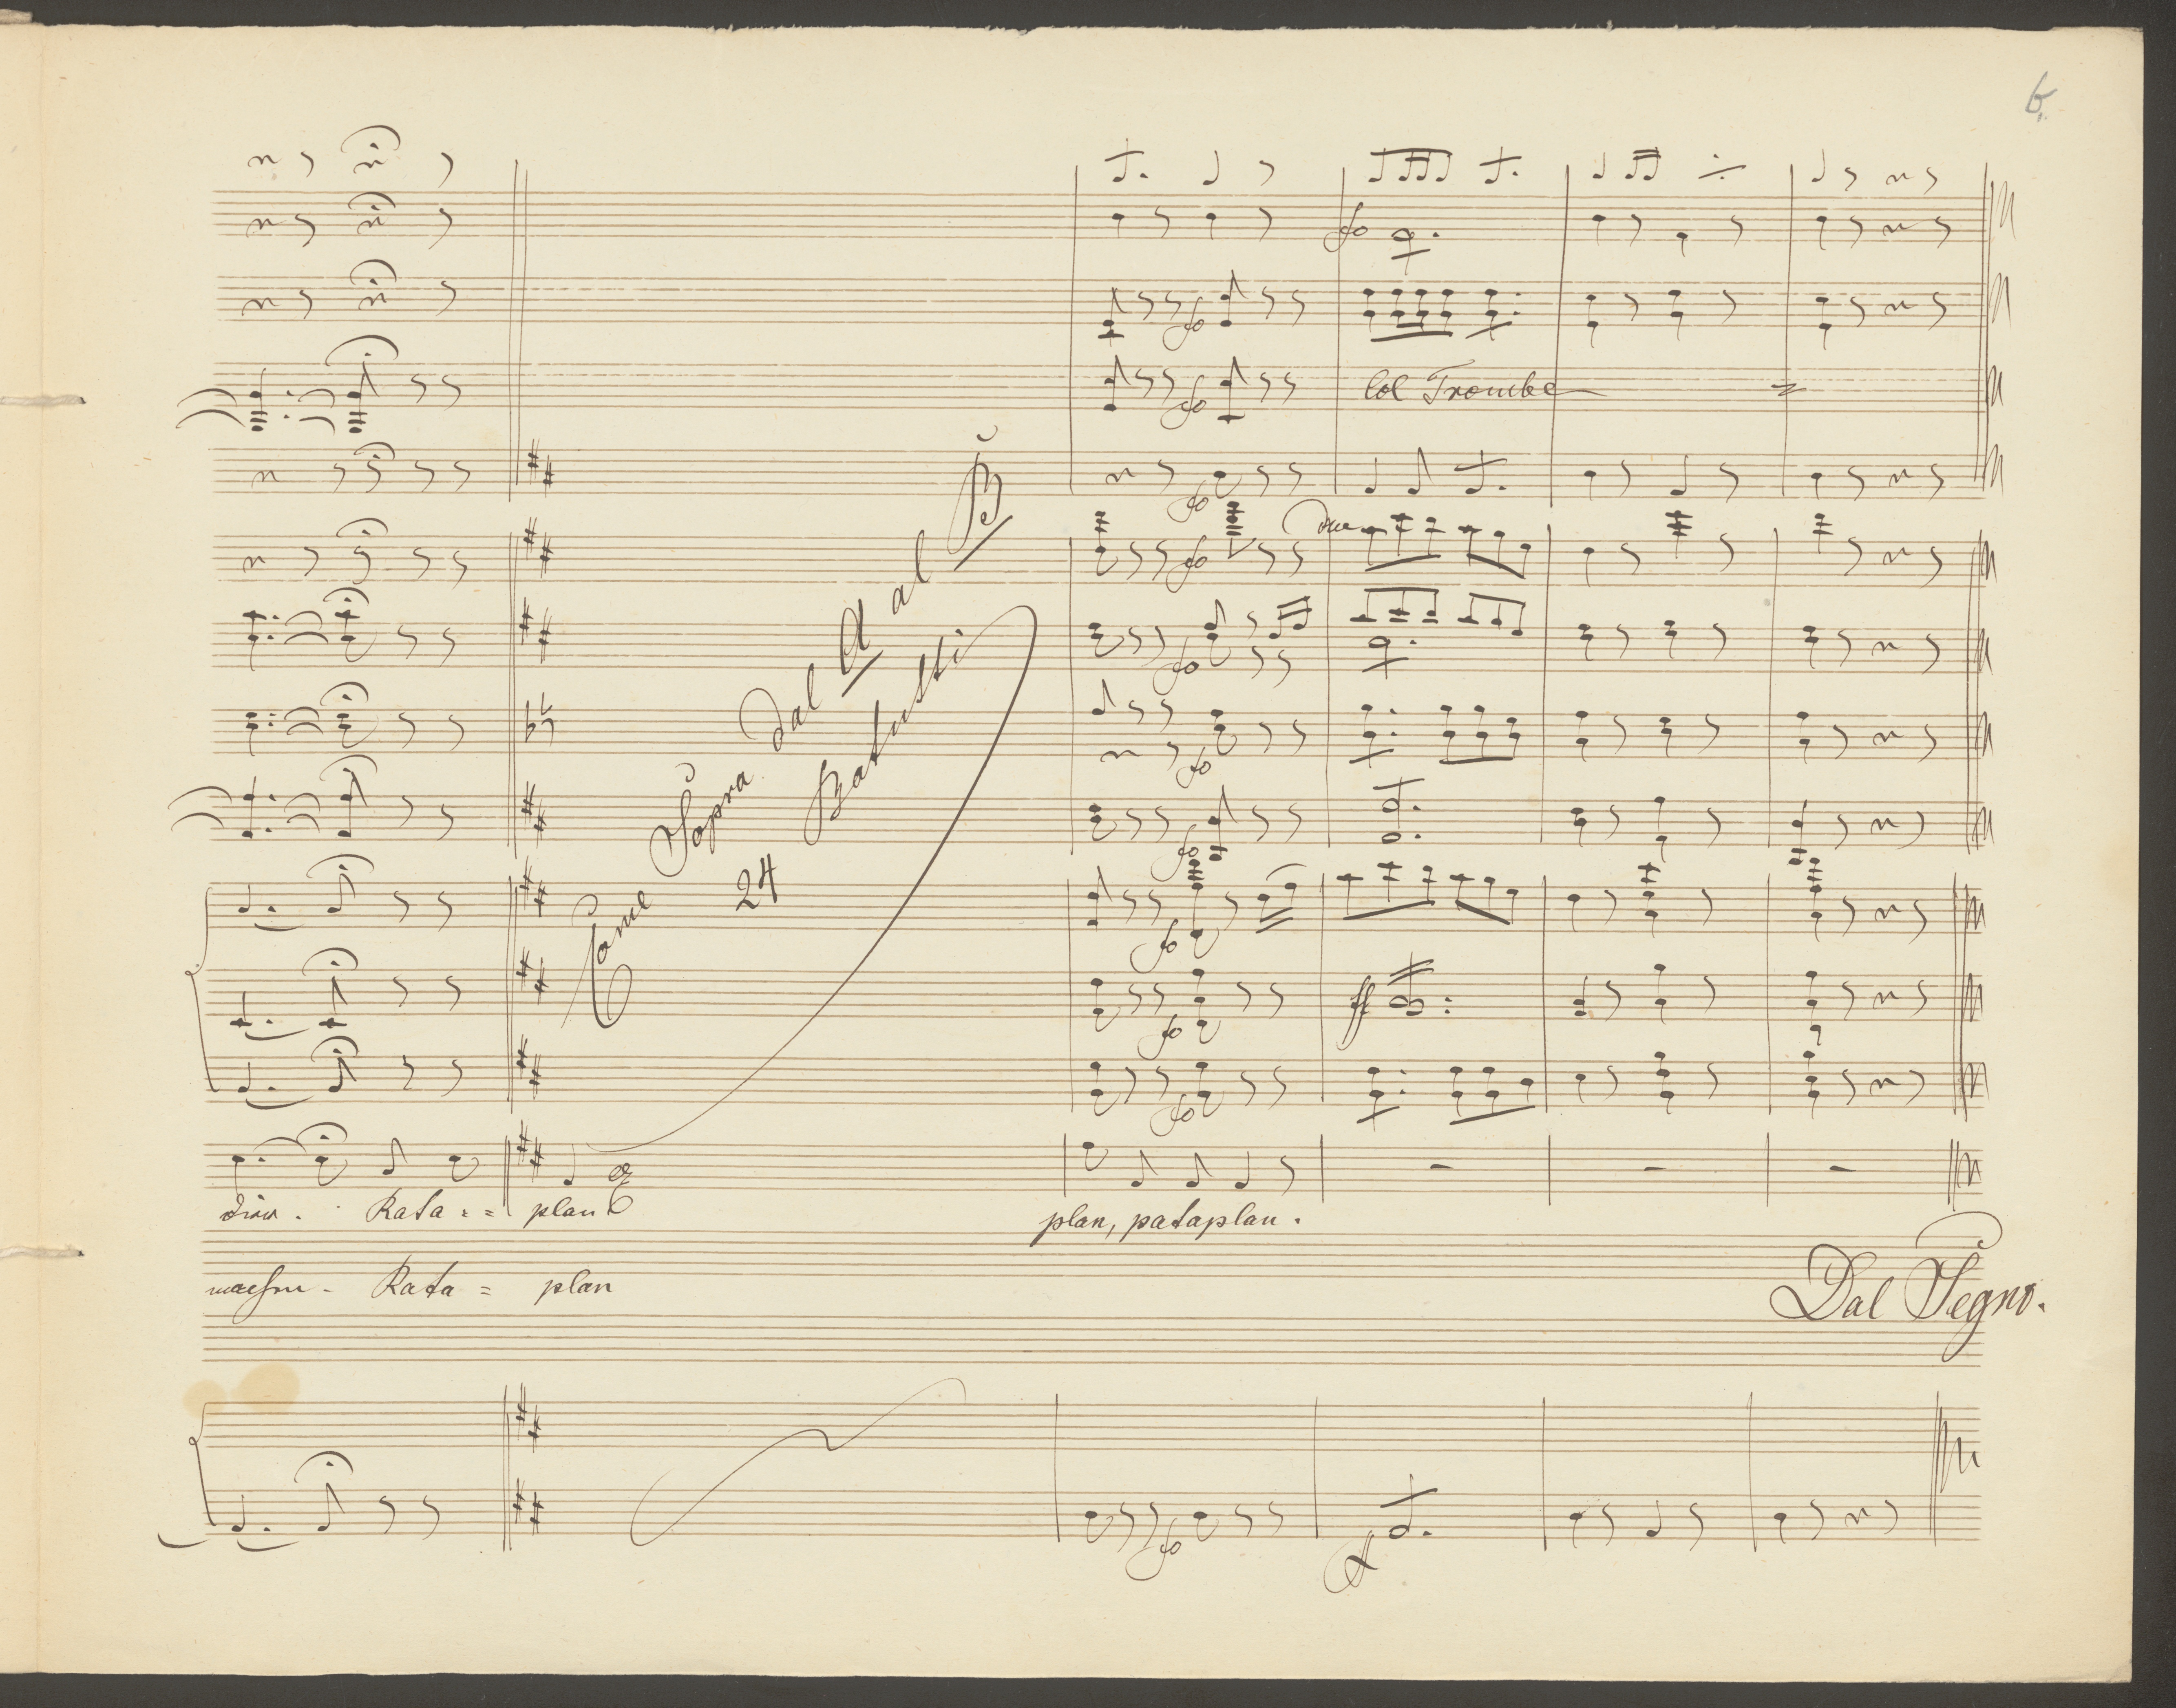 6.
fo
fo
fo
Col Trombe
fo
fo
fo
fo
fo
Come Sopra Dal A al B
24 Battutti
fo
fo
ff
fo
Rata = = plan
plan, pataplan.
Rata = plan
Dal Segno.
fo
ff